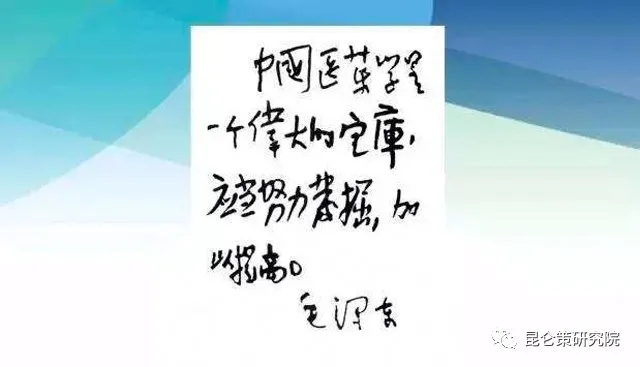 中國医药学是
一个偉大的宝庫，
应当努力发掘，加
以提高。
毛泽东
昆仑策研究院